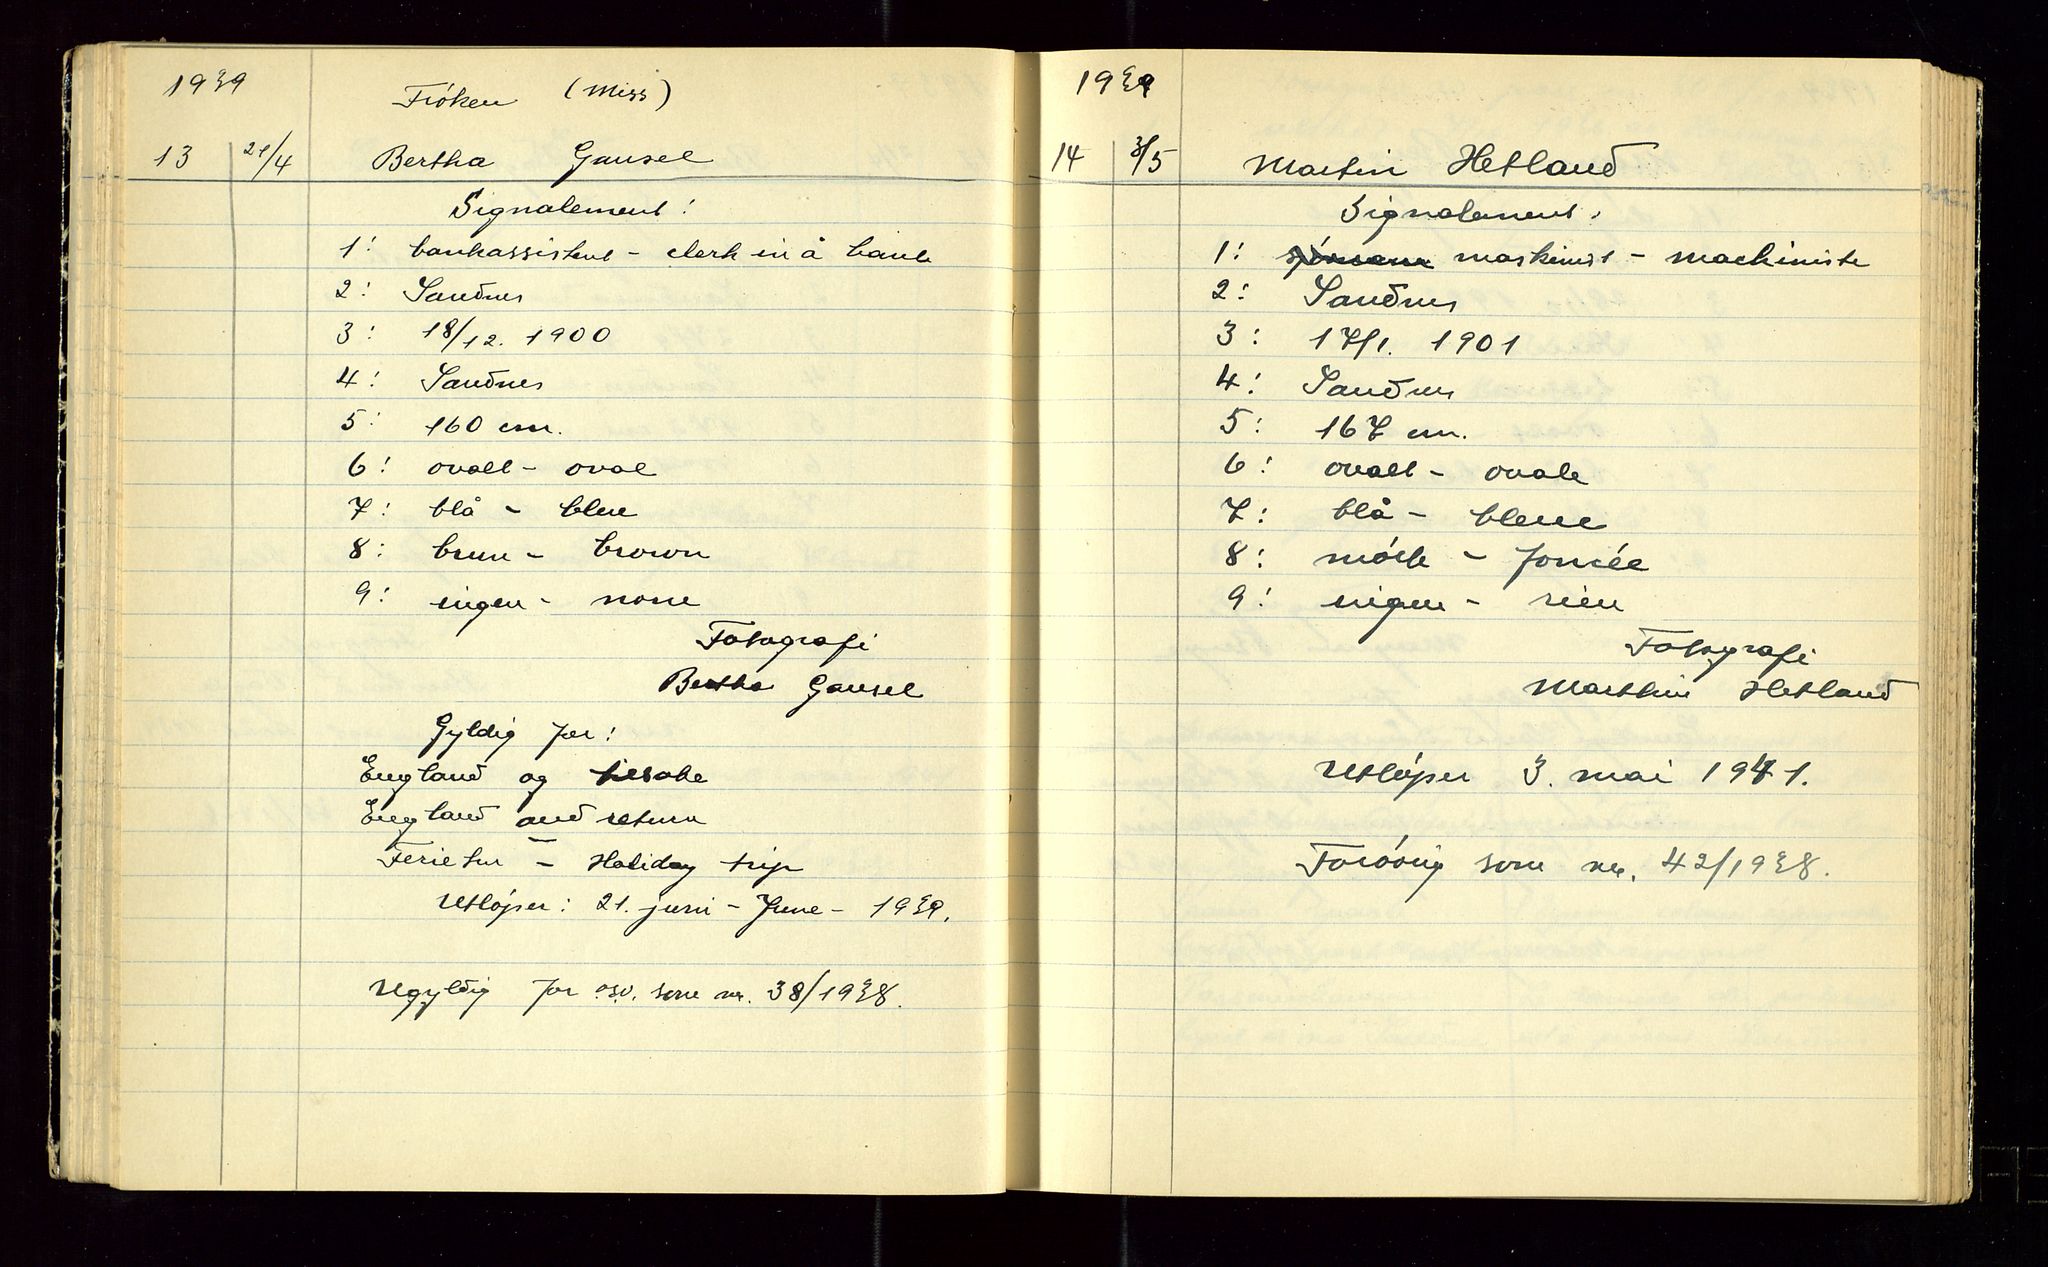 1939
Frøken (Miss)
13 21/4 Bertha Gausel
Signalement:
1: bankassistent - clerk in å bank
2: Sandnes
3: 18/12. 1900
4: Sandnes
5: 160 cm.
6: ovalt - oval
7: blå - blue
8: brun - brown
9: ingen - none
Fotografi
Bertha Gausel
Gyldig for:
England og tilbake
England and return
Ferietur - Holiday trip
Utløper: 21. juni - June - 1939.
Ugyldig for osv. som nr. 38/1938.
1939
14 3/5 Martin Hetland
Signalement:
1: sjømann maskinist - machiniste
2: Sandnes
3: 17/1. 1901
4: Sandnes
5: 167 cm.
6: ovalt - ovale
7: blå - bleue
8: mørk - foncée
9: ingen - rien
Fotografi
Marthin Hetland
Utløper 3. mai 1941.
Forøvrig som nr. 42/1938.